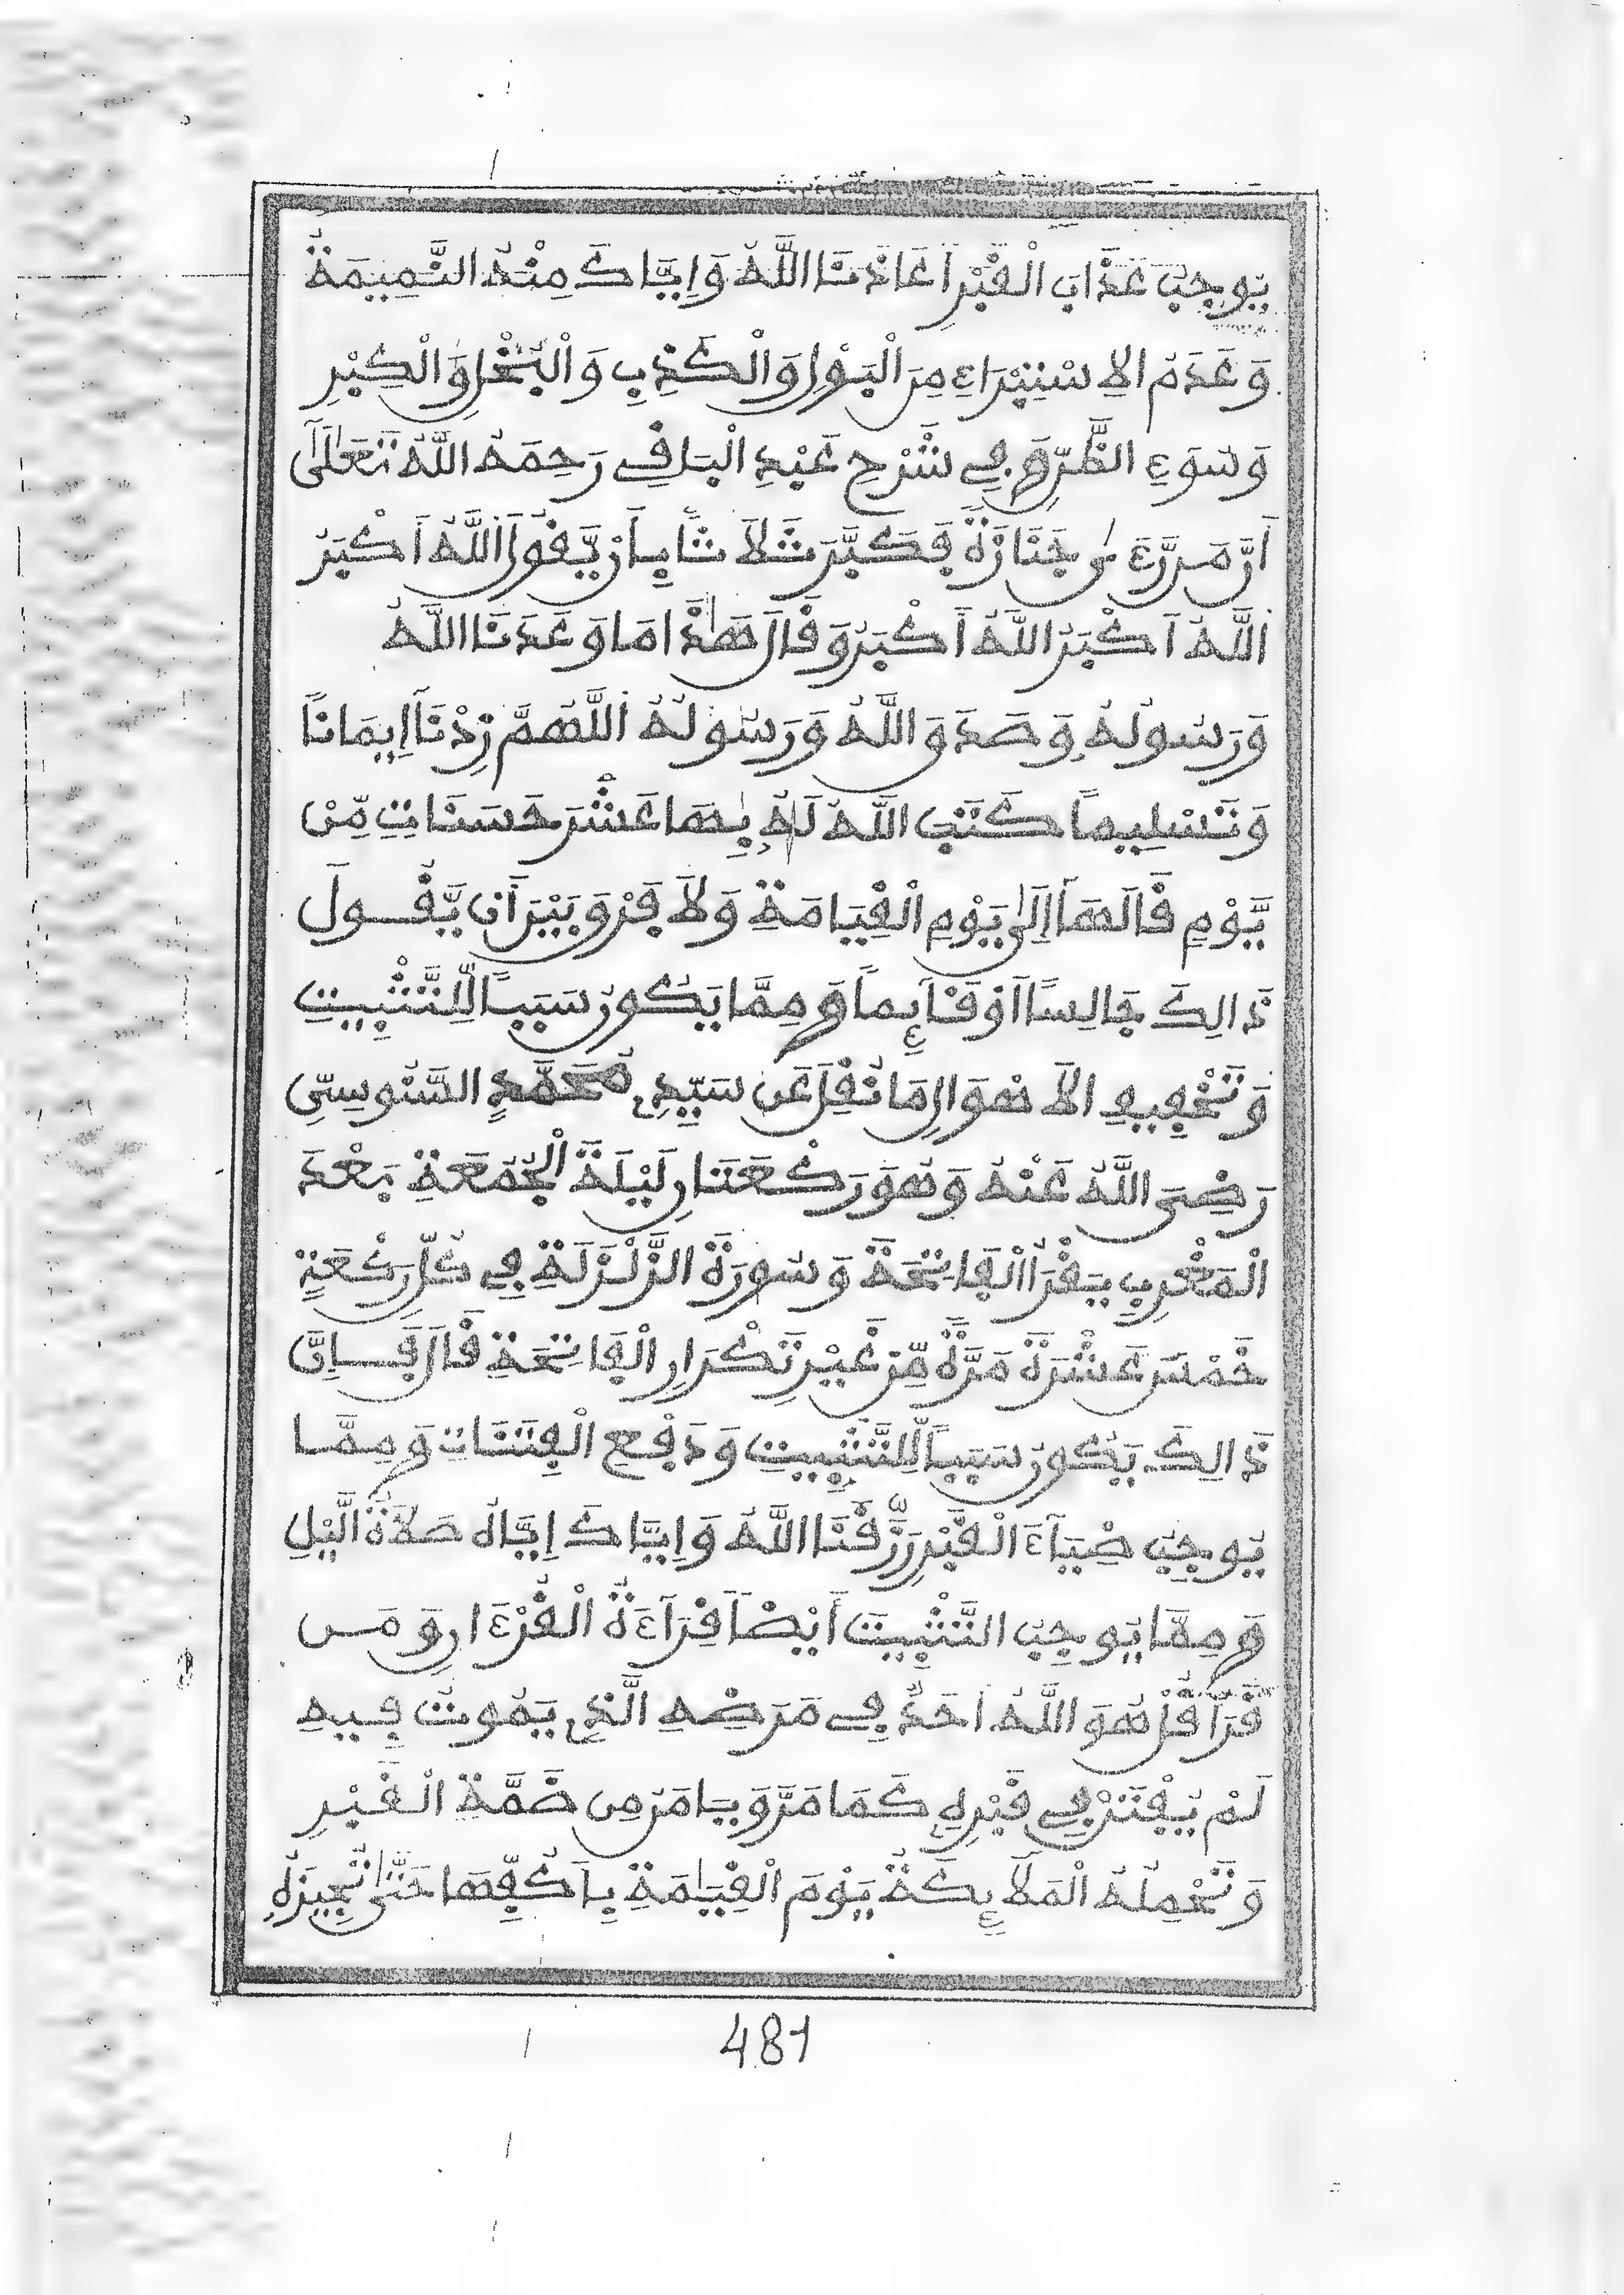 يُوجِبُ عَذَابَ الْقَبْرِ أَعَاذَنَا اللَّهُ وَإِيَّاكَ مِنْهُ النَّمِيمَةُ
وَعَدَمُ الِاسْتِبْرَاءِ مِنَ الْبَوْلِ وَالْكَذِبِ وَالْبُخْلِ وَالْكِبْرِ
وَسُوءِ الظَّنِّ وَفِي شَرْحِ عَبْدِ الْبَاقِي رَحِمَهُ اللَّهُ تَعَالَى
أَنَّ مَن رَّءَى جَنَازَةً فَكَبَّرَ ثَلَاثًا بِأَنْ يَّقُولَ اللَّهُ أَكْبَرُ
اللَّهُ أَكْبَرُ اللَّهُ أَكْبَرُ وَقَالَ هَٰذَا مَا وَعَدَنَا اللَّهُ
وَرَسُولُهُ وَصَدَقَ اللَّهُ وَرَسُولُهُ اللَّهُمَّ زِدْنَا إِيمَانًا
وَتَسْلِيمًا كَتَبَ اللَّهُ لَهُ بِهَا عَشْرَ حَسَنَاتٍ مِّنْ
يَّوْمِ قَالَهَا إِلَىٰ يَوْمِ الْقِيَامَةِ وَلَا فَرْقَ بَيْنَ أَن يَّقُولَ
ذَالِكَ جَالِسًا أَوْ قَآئِمًا وَمِمَّا يَكُونُ سَبَبًا لِّلتَّثْبِيتِ
وَتَخْفِيفِ الْأَهْوَالِ مَا نُقِلَ عَن سَيِّدِي مُحَمَّدٍ السَّنُوسِيِّ
رَضِيَ اللَّهُ عَنْهُ وَهُوَ رَكْعَتَانِ لَيْلَةَ الْجُمُعَةِ بَعْدَ
الْمَغْرِبِ يَقْرَأُ الْفَاتِحَةَ وَسُورَةَ الزَّلْزَلَةِ فِي كُلِّ رَكْعَةٍ
خَمْسَ عَشْرَةَ مَرَّةً مِّنْ غَيْرِ تَكْرَارِ الْفَاتِحَةِ قَالَ فَإِنَّ
ذَالِكَ يَكُونُ سَبَبًا لِّلتَّثْبِيتِ وَدَفْعِ الْفِتَنَاتِ وَمِمَّا
يُوجِبُ ضِيَآءَ الْقَبْرِ رَزَقَنَا اللَّهُ وَإِيَّاكَ إِيَّاهُ صَلَاةُ الَّيْلِ
وَمِمَّا يُوجِبُ التَّثْبِيتَ أَيْضًا قِرَآءَةُ الْقُرْءَانِ وَمَن
قَرَأَ قُلْ هُوَ اللَّهُ أَحَدٌ فِي مَرَضِهِ الَّذِي يَمُوتُ فِيهِ
لَمْ يُفْتَنْ فِي قَبْرِهِ كَمَا مَرَّ وَيَامَنُ مِن ضَمَّةِ الْقَبْرِ
وَتَحْمِلُهُ الْمَلَائِكَةُ يَوْمَ الْقِيَامَةِ بِأَكُفِّهَا حَتَّىٰ تُجِيزَهُ
481